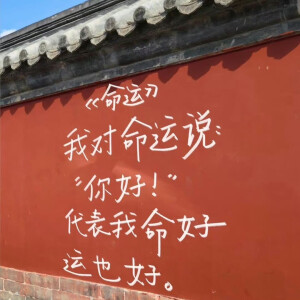 《命运》
我对命运说:
“你好!”
代表我命好
运也好。